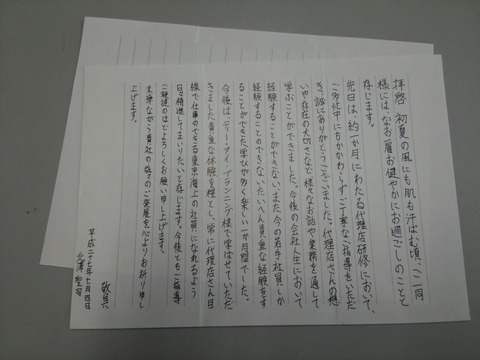 拝啓 初夏の風にも肌も汗ばむ頃、ご一同
様には、なお一層お健やかにお過ごしのことと
存じます。
先日は、約一か月にわたる代理店研修において、
ご多忙中にもかかわらずご丁寧なご指導をいただ
き、誠にありがとうございました。代理店さんの想
いや存在の大切さなど、様々なお話や業務を通して
学ぶことができました。今後の会社人生において
経験することができない、また今の若手社員しか
経験することのできない、たいへん貴重な経験をす
ることができた学びが多く楽しい一ヶ月間でした。
今後は、ティー・アイ・プランニング様で学ばせていただ
きました貴重な体験を糧とし、常に代理店さん目
線で仕事のできる東京海上の社員になれるよう
日々精進してまいりたいと存じます。今後ともご指導
ご鞭撻のほどよろしくお願い申し上げます。
末筆ながら貴社の益々のご発展を心よりお祈り申し
上げます。
敬具
平成二十七年七月四日